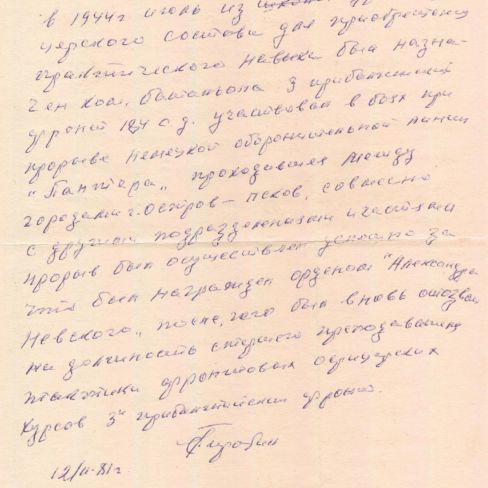 в 1944 г июль из
черского состава для приобретения
практического навыка был назна-
чен ком. батальона 3 прибалтийских
фронт с.д. участвовал в боях при
прорыве немецкой оборонительной линии
"Пантера" проходившая между
городами г. Остров - Псков, совместно
с другими подразделениями и частями
прорыв был осуществлен успешно за
что был награжден орденом "Александра
Невского" после, чего был вновь отозван
на должность старшего преподавателя
тактики фронтовых офицерских
курсов 3го прибалтийский фронт.
12/II-81 г.